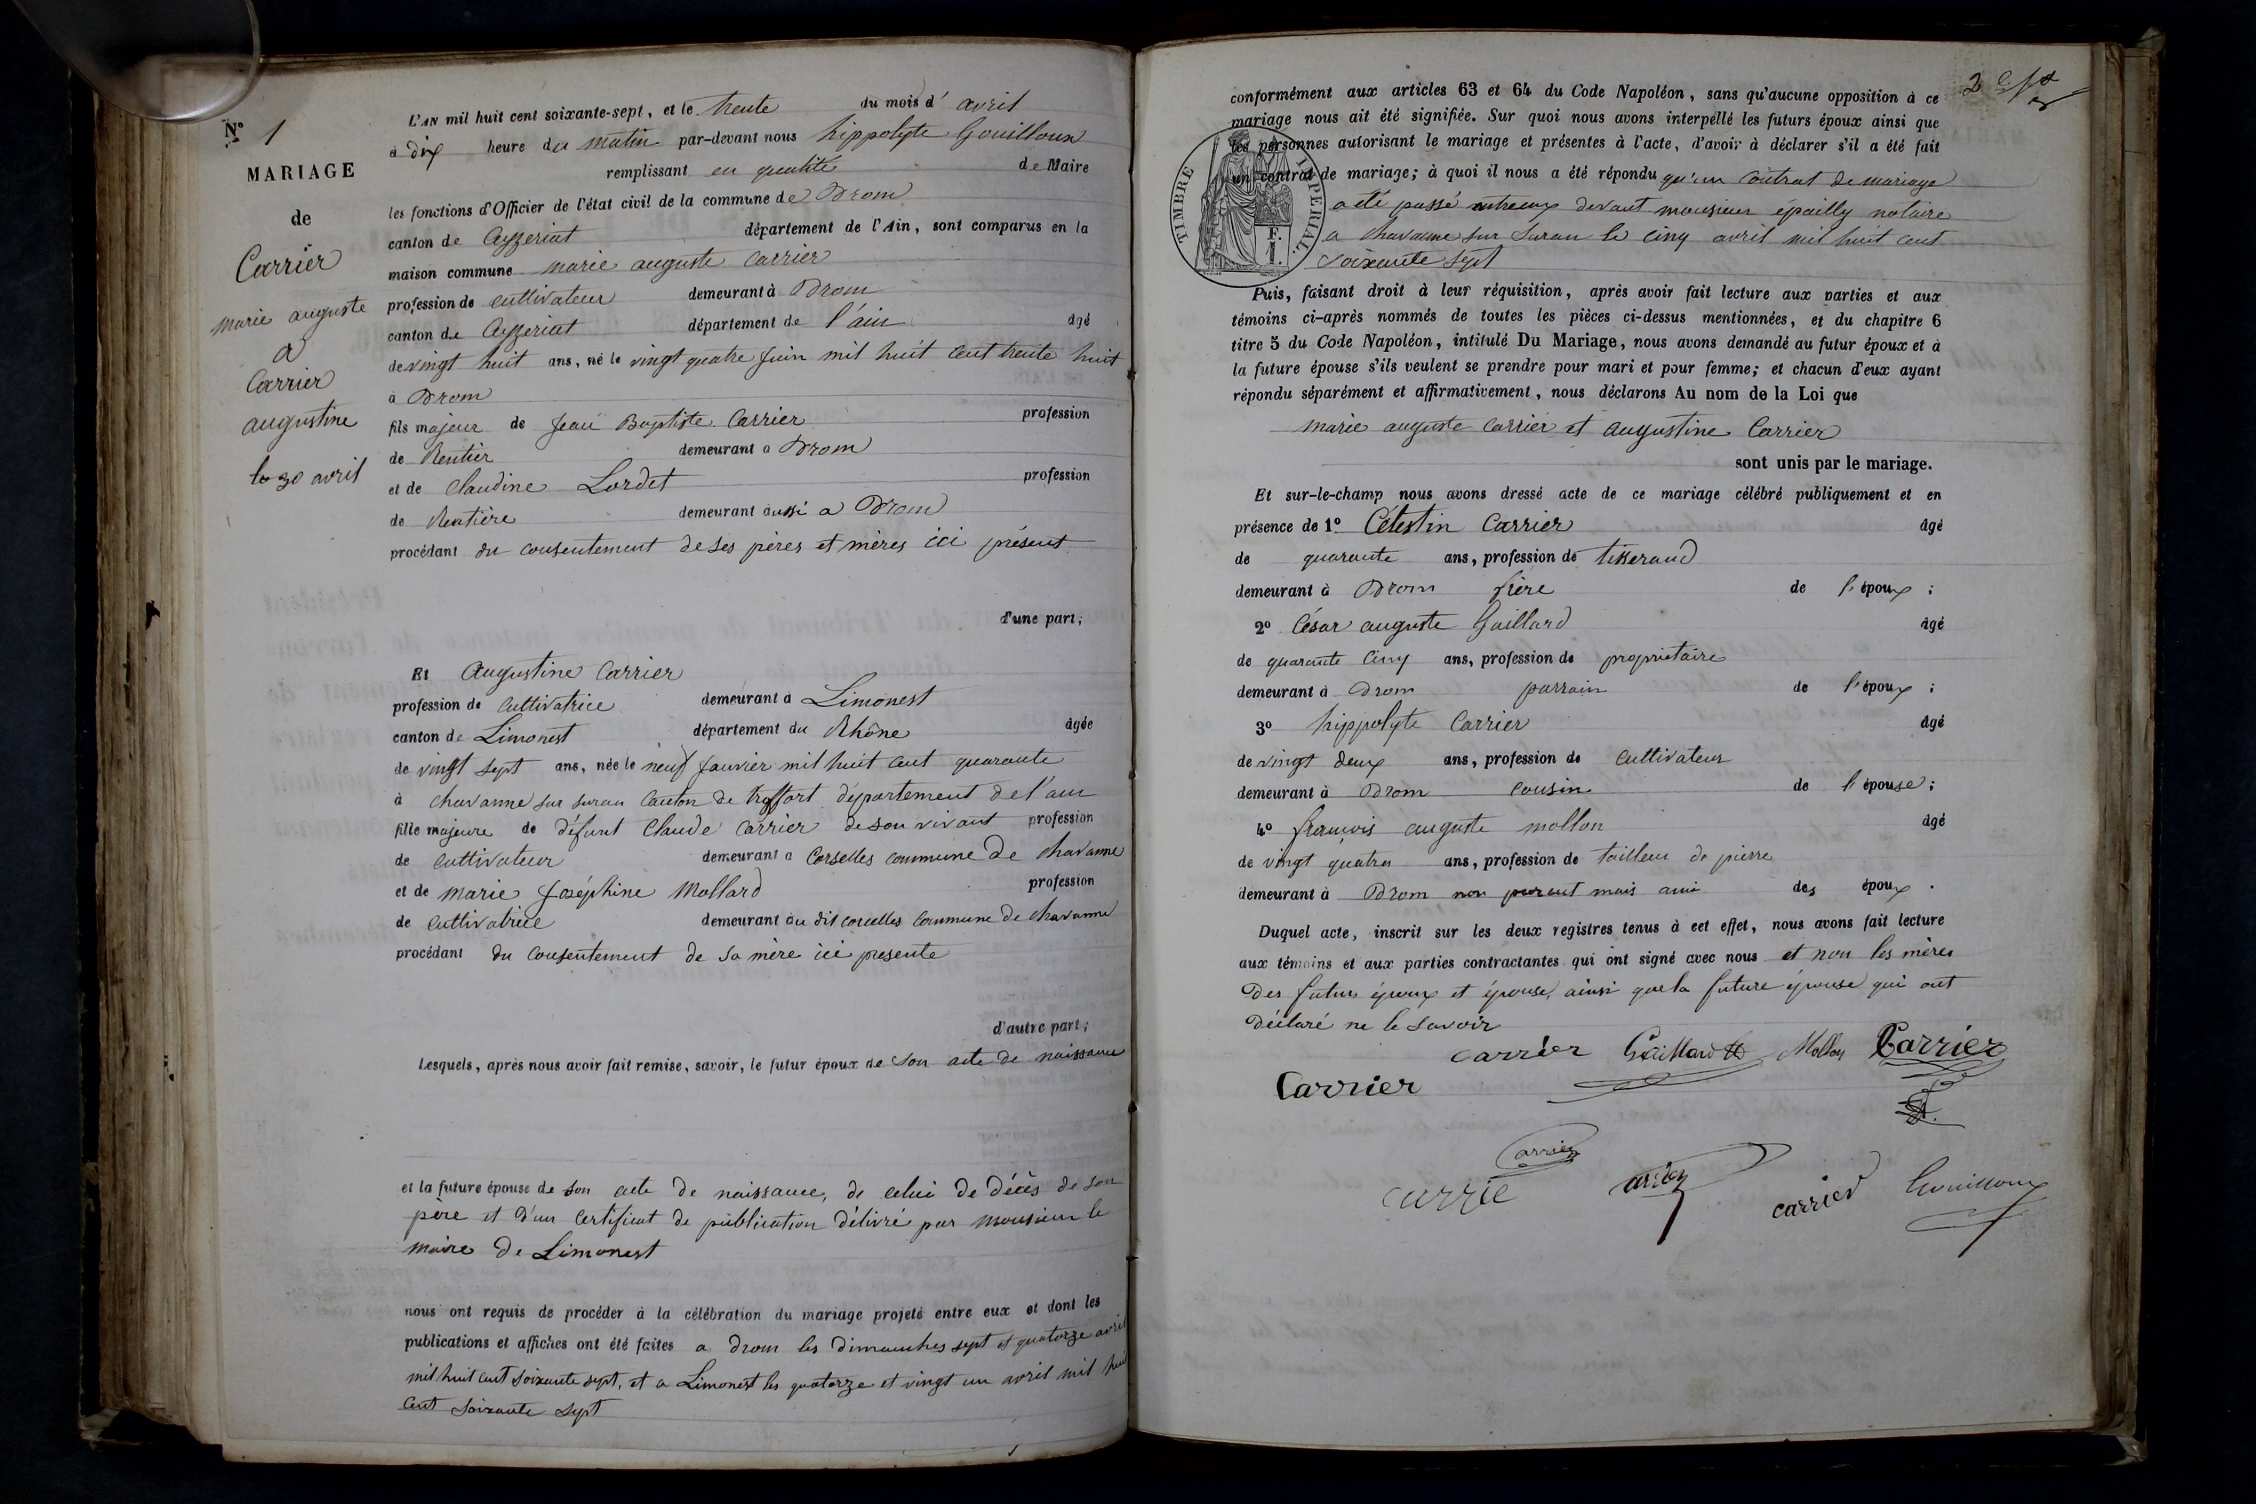 N° 1
MARIAGE
de
Carrier
marie auguste
a
Carrier
augustine
le 30 avril
L'AN mil huit cent soixante-sept, et le trente du mois d' avril
à dix heure du matin par-devant nous hippolyte Gouilloux
remplissant en qualité de Maire
les fonctions d'Officier de l'état civil de la commune de Drom
canton de Ceyzeriat département de l'Ain, sont comparus en la
maison commune marie auguste Carrier
profession de cultivateur demeurant à Drom
canton de Ceyzeriat département de l'ain âgé
de vingt huit ans, né le vingt quatre juin mil huit cent trente huit
à Drom
fils majeur de Jean Baptiste Carrier profession
de Rentier demeurant a Drom
et de Claudine Lordet profession
de Rentière demeurant aussi a Drom
procédant du consentement de ses pères et mères ici présent
d'une part;
Et Augustine Carrier
profession de Cultivatrice demeurant à Limonest
canton de Limonest département du Rhône âgée
de vingt sept ans, née le neuf janvier mil huit cent quarante
à chavanne sur suran Canton de treffort département de l'ain
fille majeure de défunt Claude Carrier de son vivant profession
de cultivateur demeurant a Corselles commune de chavanne
et de marie joséphine Mollard profession
de Cultivatrice demeurant au dit corcelles commune de chavanne
procédant du consentement de sa mère ici presente
d'autre part;
Lesquels, après nous avoir fait remise, savoir, le futur époux de son acte de naissance
et la future épouse de son acte de naissance, de celui de décès de son
père et d'un certificat de publication délivré par monsieur le
maire de Limonest
nous ont requis de procéder à la célébration du mariage projeté entre eux et dont les
publications et affiches ont été faites a drom les dimanches sept et quatorze avril
mil huit cent soixante sept, et a Limonest les quatorze et vingt un avril mil huit
cent soixante sept
2
conformément aux articles 63 et 64 du Code Napoléon, sans qu'aucune opposition à ce
mariage nous ait été signifiée. Sur quoi nous avons interpellé les futurs époux ainsi que
les personnes autorisant le mariage et présentes à l'acte, d'avoir à déclarer s'il a été fait
un contrat de mariage; à quoi il nous a été répondu qu'un contrat de mariage
a été passé entre eux devant monsieur épailly notaire
a chavanne sur suran le cinq avril mil huit cent
soixante sept
TIMBRE IMPERIAL
1 F.
Puis, faisant droit à leur réquisition, après avoir fait lecture aux parties et aux
témoins ci-après nommés de toutes les pièces ci-dessus mentionnées, et du chapitre 6
titre 5 du Code Napoléon, intitulé Du Mariage, nous avons demandé au futur époux et à
la future épouse s'ils veulent se prendre pour mari et pour femme; et chacun d'eux ayant
répondu séparément et affirmativement, nous déclarons Au nom de la Loi que
marie auguste carrier et augustine Carrier
sont unis par le mariage.
Et sur-le-champ nous avons dressé acte de ce mariage célébré publiquement et en
présence de 1° Célestin Carrier âgé
de quarante ans, profession de tisserand
demeurant à Drom frère de l'époux;
2° César auguste Gaillard âgé
de quarante cinq ans, profession de propriétaire
demeurant à Drom parrain de l'époux;
3° hippolyte Carrier âgé
de vingt deux ans, profession de cultivateur
demeurant à Drom cousin de l'épouse;
4° françois auguste mollon âgé
de vingt quatre ans, profession de tailleur de pierre
demeurant à Drom non parent mais ami des époux.
Duquel acte, inscrit sur les deux registres tenus à cet effet, nous avons fait lecture
aux témoins et aux parties contractantes qui ont signé avec nous et non les mères
des futurs époux et épouse, ainsi que la future épouse qui ont
déclaré ne le savoir
carrier Gaillard Mollon Carrier
Carrier
Carrier
carrie carrier carrier Gouilloux